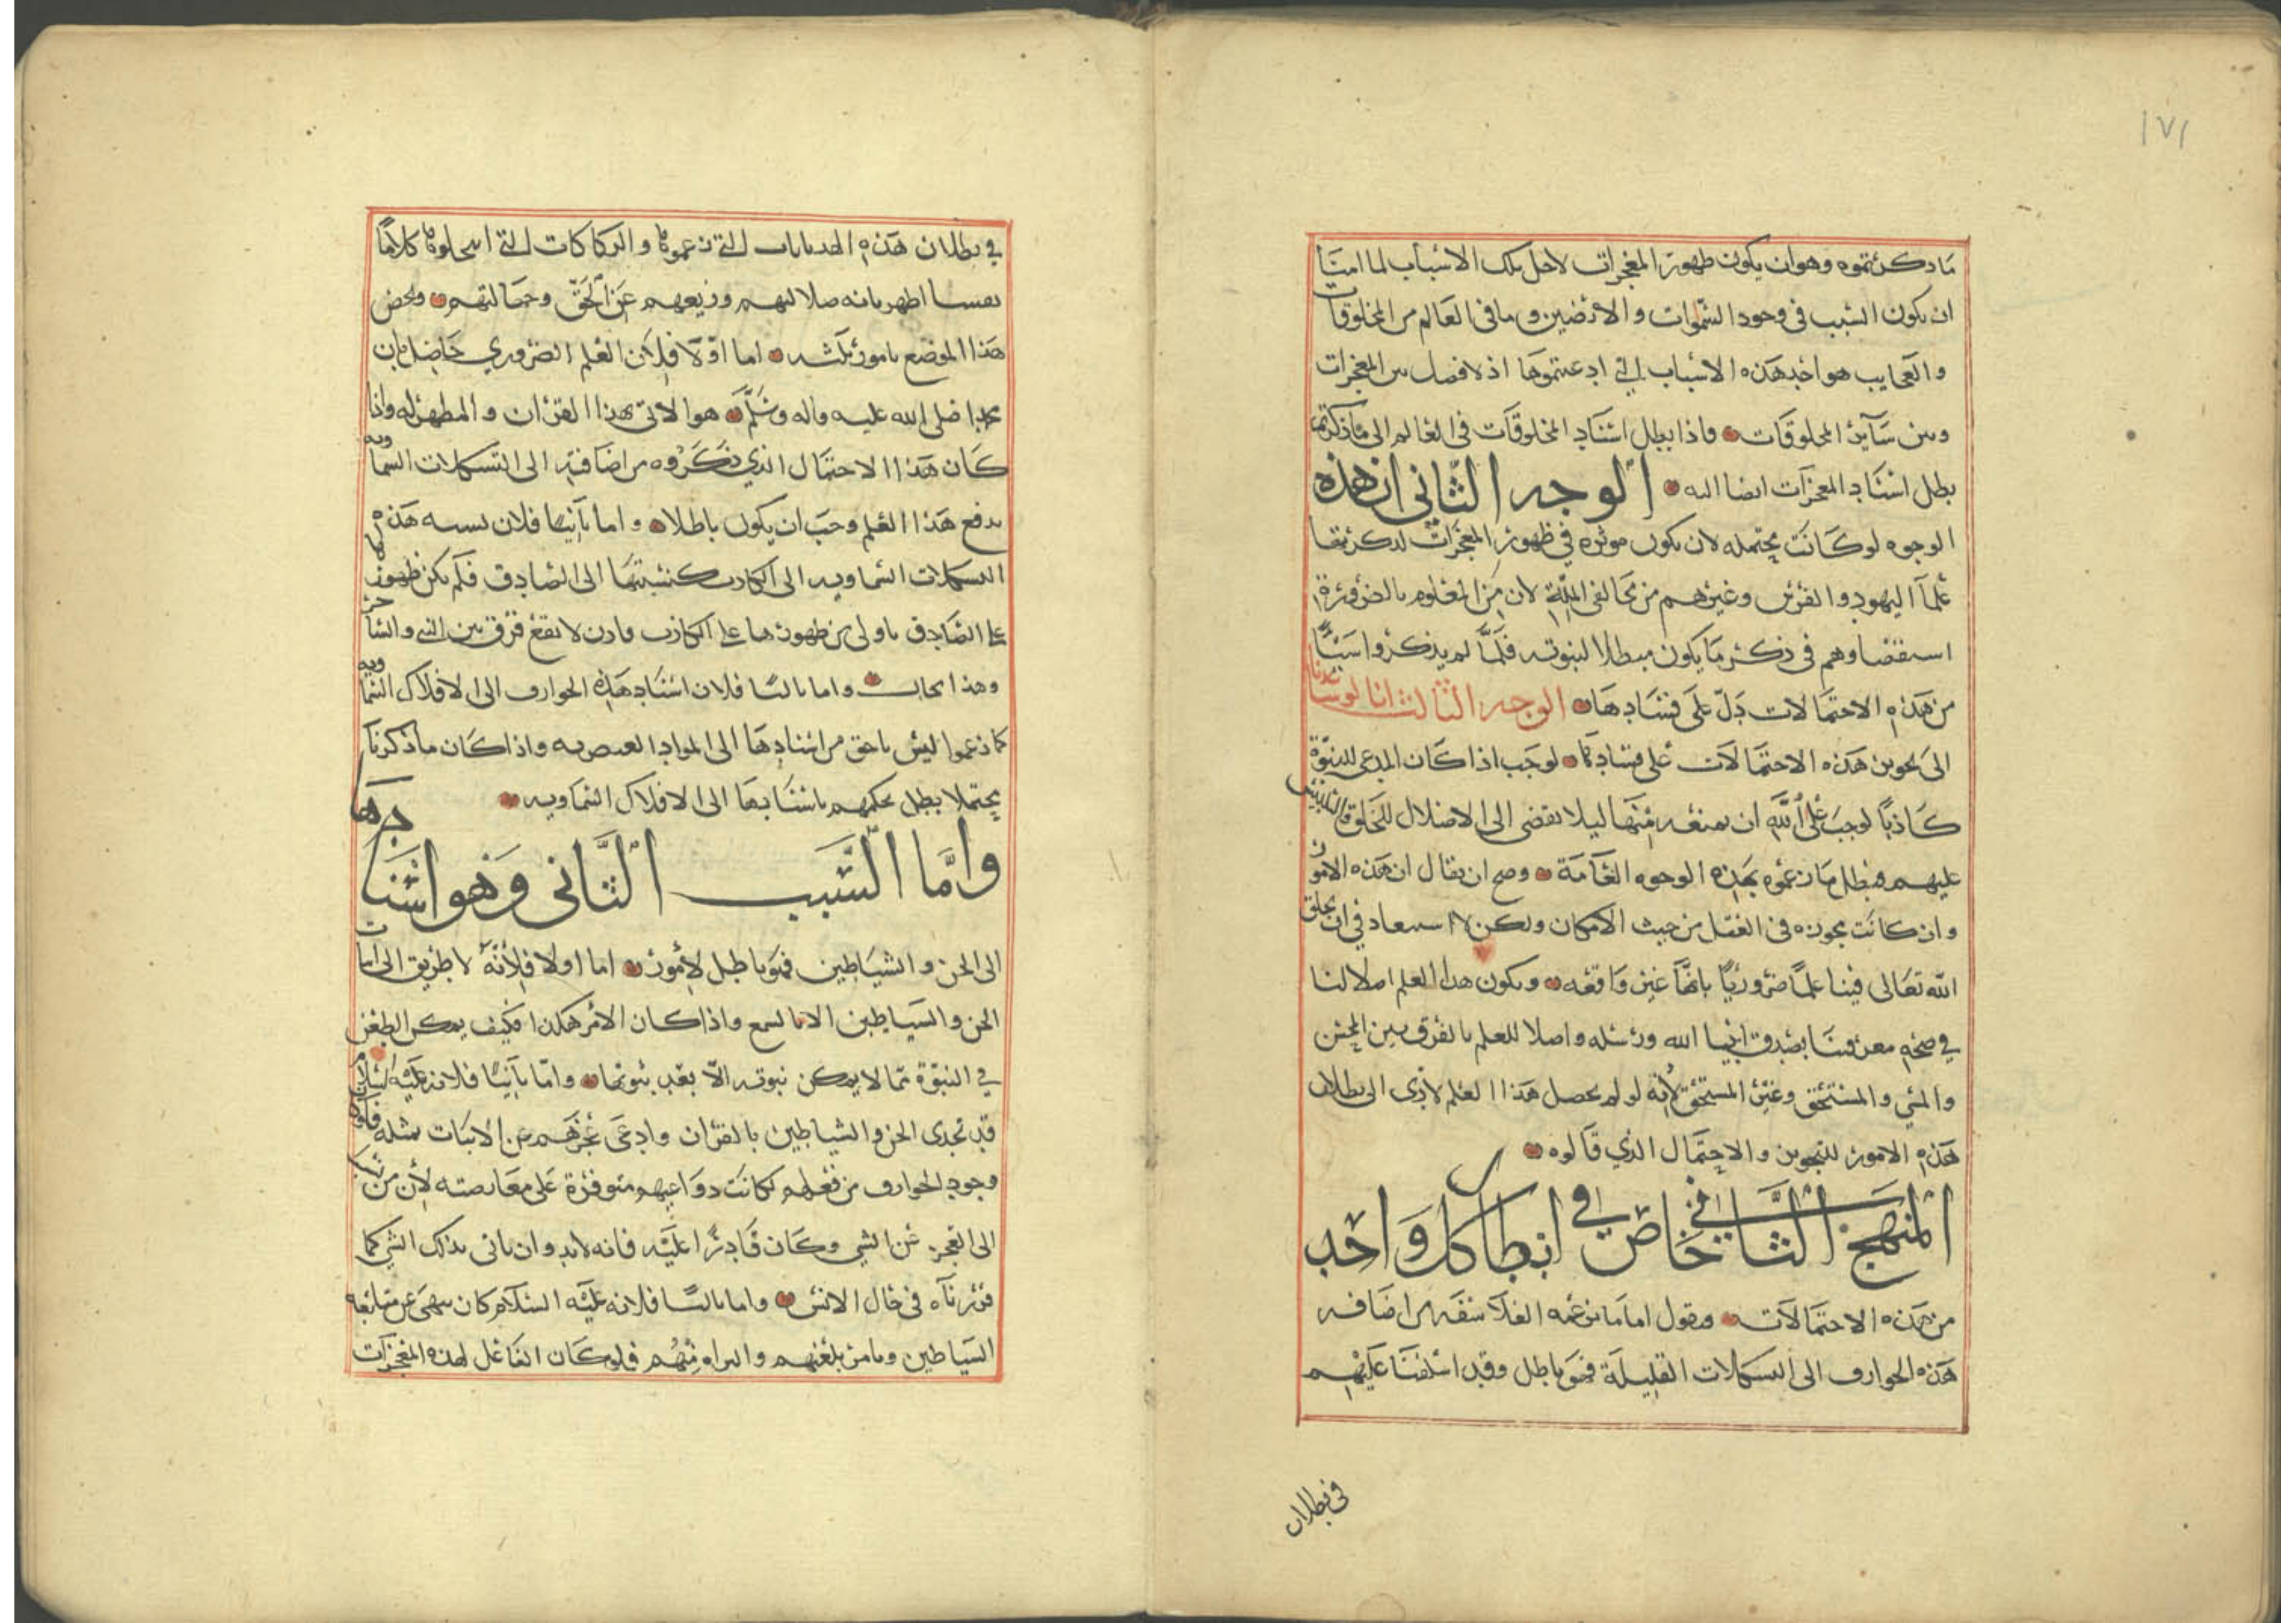 ١٧١
ما ذكرتموه وهو ان يكون ظهور المعجزات لاجل تلك الاسباب لما امنا
ان يكون السبب في وجود السموات والارضين وما في العالم من المخلوقات
والعجايب هو احد هذه الاسباب التي ادعيتموها اذ لا فصل بين المعجزات
وبين سآير المخلوقات فاذا بطل اسناد المخلوقات في العالم الى ما ذكرتم
بطل اسناد المعجزات ايضا اليه الوجه الثاني ان هذه
الوجوه لو كانت محتمله لان يكون موثره في ظهور المعجزات لذكرتها
علمآ اليهود والفرس وغيرهم من مخالفي الملة لان من المعلوم بالضرورة
استقصاوهم في ذكر ما يكون مبطلا لنبوته فلما لم يذكروا شيئا
من هذه الاحتمالات دل على فسادها الوجه الثالث انا لو ساعدنا
الى تجويز هذه الاحتمالات على فسادها لوجب اذا كان المدعي للنبوة
كاذبا لوجب على الله ان يمنعه منها ليلا يفضى الى الاضلال للخلق والتلبيس
عليهم فبطل ما زعموه بهذه الوجوه العامة وصح ان يقال ان هذه الامور
وان كانت مجوزه في العقل من حيث الامكان ولكن لا استبعاد في ان يخلق
الله تعالى فينا علما ضروريا بانها غير واقعه ويكون هذا العلم اصلا لنا
في صحه معرفتنا بصدق انبيا الله ورسله واصلا للعلم بالفرق بين المحسن
والمسي والمستحق وغير المستحق لانه لو لم يحصل هذا العلم لادى الى بطلان
هذه الامور للتجويز والاحتمال الذي قالوه
المنهج الثاني خاص في ابطال كل واحد
من هذه الاحتمالات ونقول اما ما زعمه الفلاسفه من اضافه
هذه الخوارق الى التشكلات الفلكية فهو باطل وقد اسلفنا عليهم
في بطلان
في بطلان هذه الهذيانات التي زعموها والركاكات التي استحلوها كلاما
نفيسا اظهرنا به ضلالتهم وزيغهم عن الحق وجهالتهم ونخص
هذا الموضع بامور ثلثه اما اولا فلان العلم الضروري حاصل بان
محمدا صلى الله عليه واله وسلم هو الاتي بهذا القران والمظهر له واذا
كان هذا الاحتمال الذي ذكروه من اضافته الى التشكلات السماويه
يدفع هذا العلم وجب ان يكون باطلا واما ثانيا فلان نسبه هذه
التشكلات السماويه الى الكاذب كنسبتها الى الصادق فلم يكن ظهورها
على الصادق باولى من ظهورها على الكاذب وان لا يقع فرق بين النبي والساحر
وهذا محال واما ثالثا فلان اسناد هذه الخوارق الى الافلاك السماويه
كما زعموا ليس باحق من اسنادها الى المواد العنصريه واذا كان ما ذكرناه
محتملا بطل تحكمهم باسنادها الى الافلاك السماويه
واما السبب الثاني وهو اسنادها
الى الجن والشياطين فهو باطل لامور اما اولا فلانه لا طريق الى اثبات
الجن والشياطين الا بالسمع واذا كان الامر هكذا فكيف يمكن الطعن
في النبوة بما لا يمكن ثبوته الا بعد ثبوتها واما ثانيا فلانه عليه السلام
قد تحدى الجن والشياطين بالقران وادعى عجزهم عن الاتيان بمثله فلو كان
وجود الخوارق من فعلهم لكانت دواعيهم متوفرة على معارضته لان من نسب
الى العجز عن الشي وكان قادرا عليه فانه لابد وان ياتى بذلك الشي كما
قررناه في حال الانس واما ثالثا فلانه عليه السلام كان ينهى عن متابعه
الشياطين ويامر بلعنهم والبراه منهم فلو كان الفاعل لهذه المعجزات